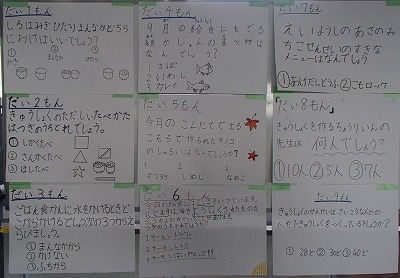 だい1もん
しるはみぎひだりまんなかどちら
におけばいいでしょう?
①みぎ ②まんなか ③ひだり
だい2もん
きゅうしょくのただしいたべかた
はつぎのうちどれでしょう。
①しかくたべ
②さんかくたべ
③はしたべ
だい3もん
ごはん食かんに水をかけるときど
こからかけるでしょう次の3つからえ
らびましょう。
①まんなかから
②かけない
③ふちから
だい4もん
9月の給食にもでる
なんでしょう?
1 さば
2 いわし
3 カレイ
だい5もん
今月のこんだてで出る
こもろで作られたキノコ
のしゅるいはなんでしょうか?
1 2 3
マツタケ しめじ なめこ
だい6もん
だい7もん
えいようしのあさのみ
ちこせんせいのすきな
メニューはなんでしょう
①あげだしどうふ ②こもロッケ
「だい8もん」
きゅうしょくを作るちょうりいんの
先生は何人でしょう?
①10人 ②5人 ③7人
だい9もん
きゅうしょくのせんせいはさいこうなんどの
へやできゅうしょくをつくっているでしょうか?
① 28ど ② 30ど ③ 40ど